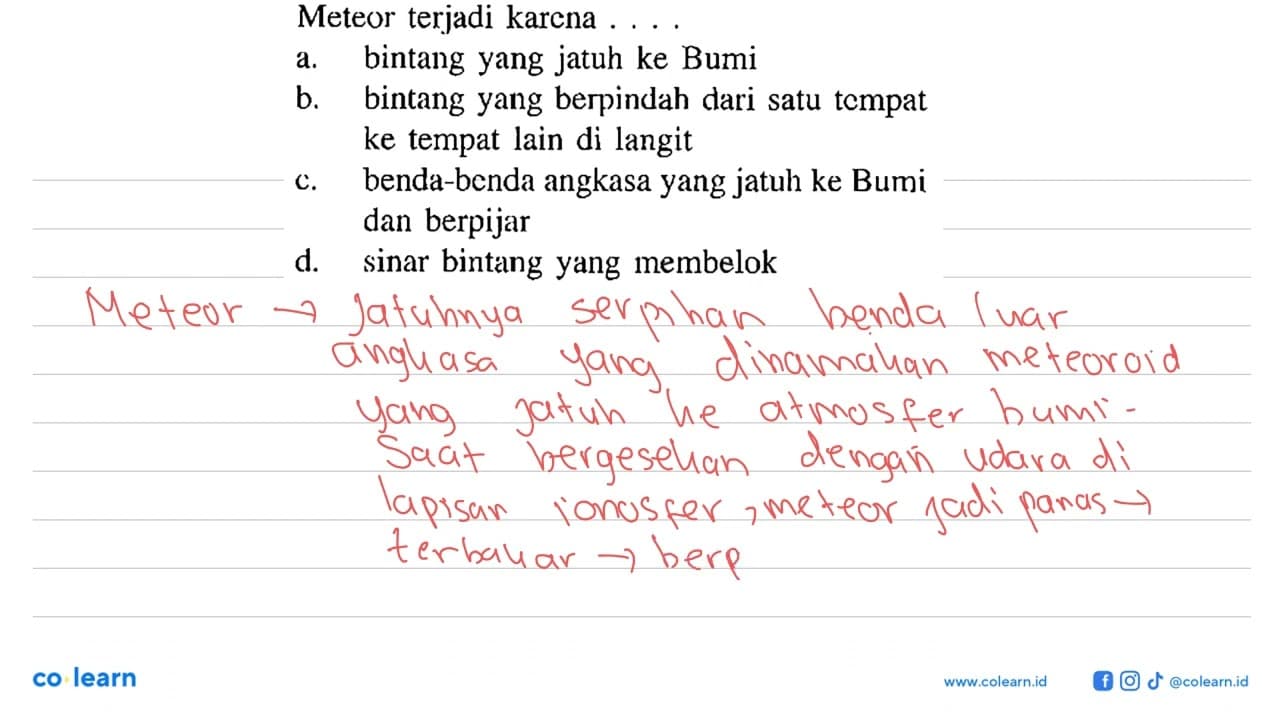 Meteor terjadi karena . . . .
a. bintang yang jatuh ke Bumi
b. bintang yang berpindah dari satu tempat
ke tempat lain di langit
c. benda-benda angkasa yang jatuh ke Bumi
dan berpijar
d. sinar bintang yang membelok
Meteor → Jatuhnya serpihan benda luar
angkasa yang dinamakan meteoroid
yang jatuh ke atmosfer bumi.
Saat bergesekan dengan udara di
lapisan ionosfer, meteor jadi panas →
terbakar → berp
co learn
www.colearn.id @colearn.id